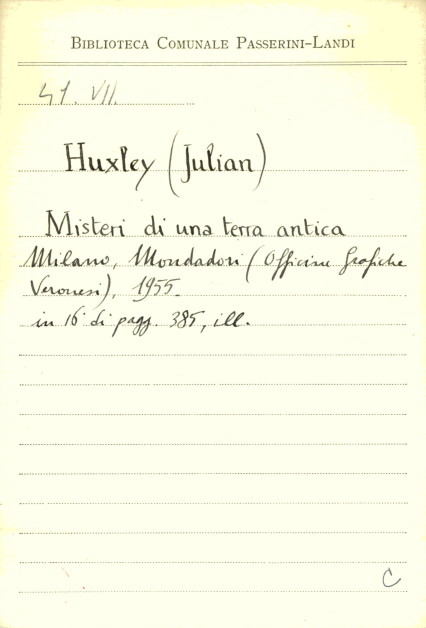 BIBLIOTECA COMUNALE PASSERINI-LANDI
41. VII.
Huxley (Julian)
Misteri di una terra antica
Milano, Mondadori (Officine Grafiche
Veronesi), 1955.
in 16° di pagg. 385, ill.
C